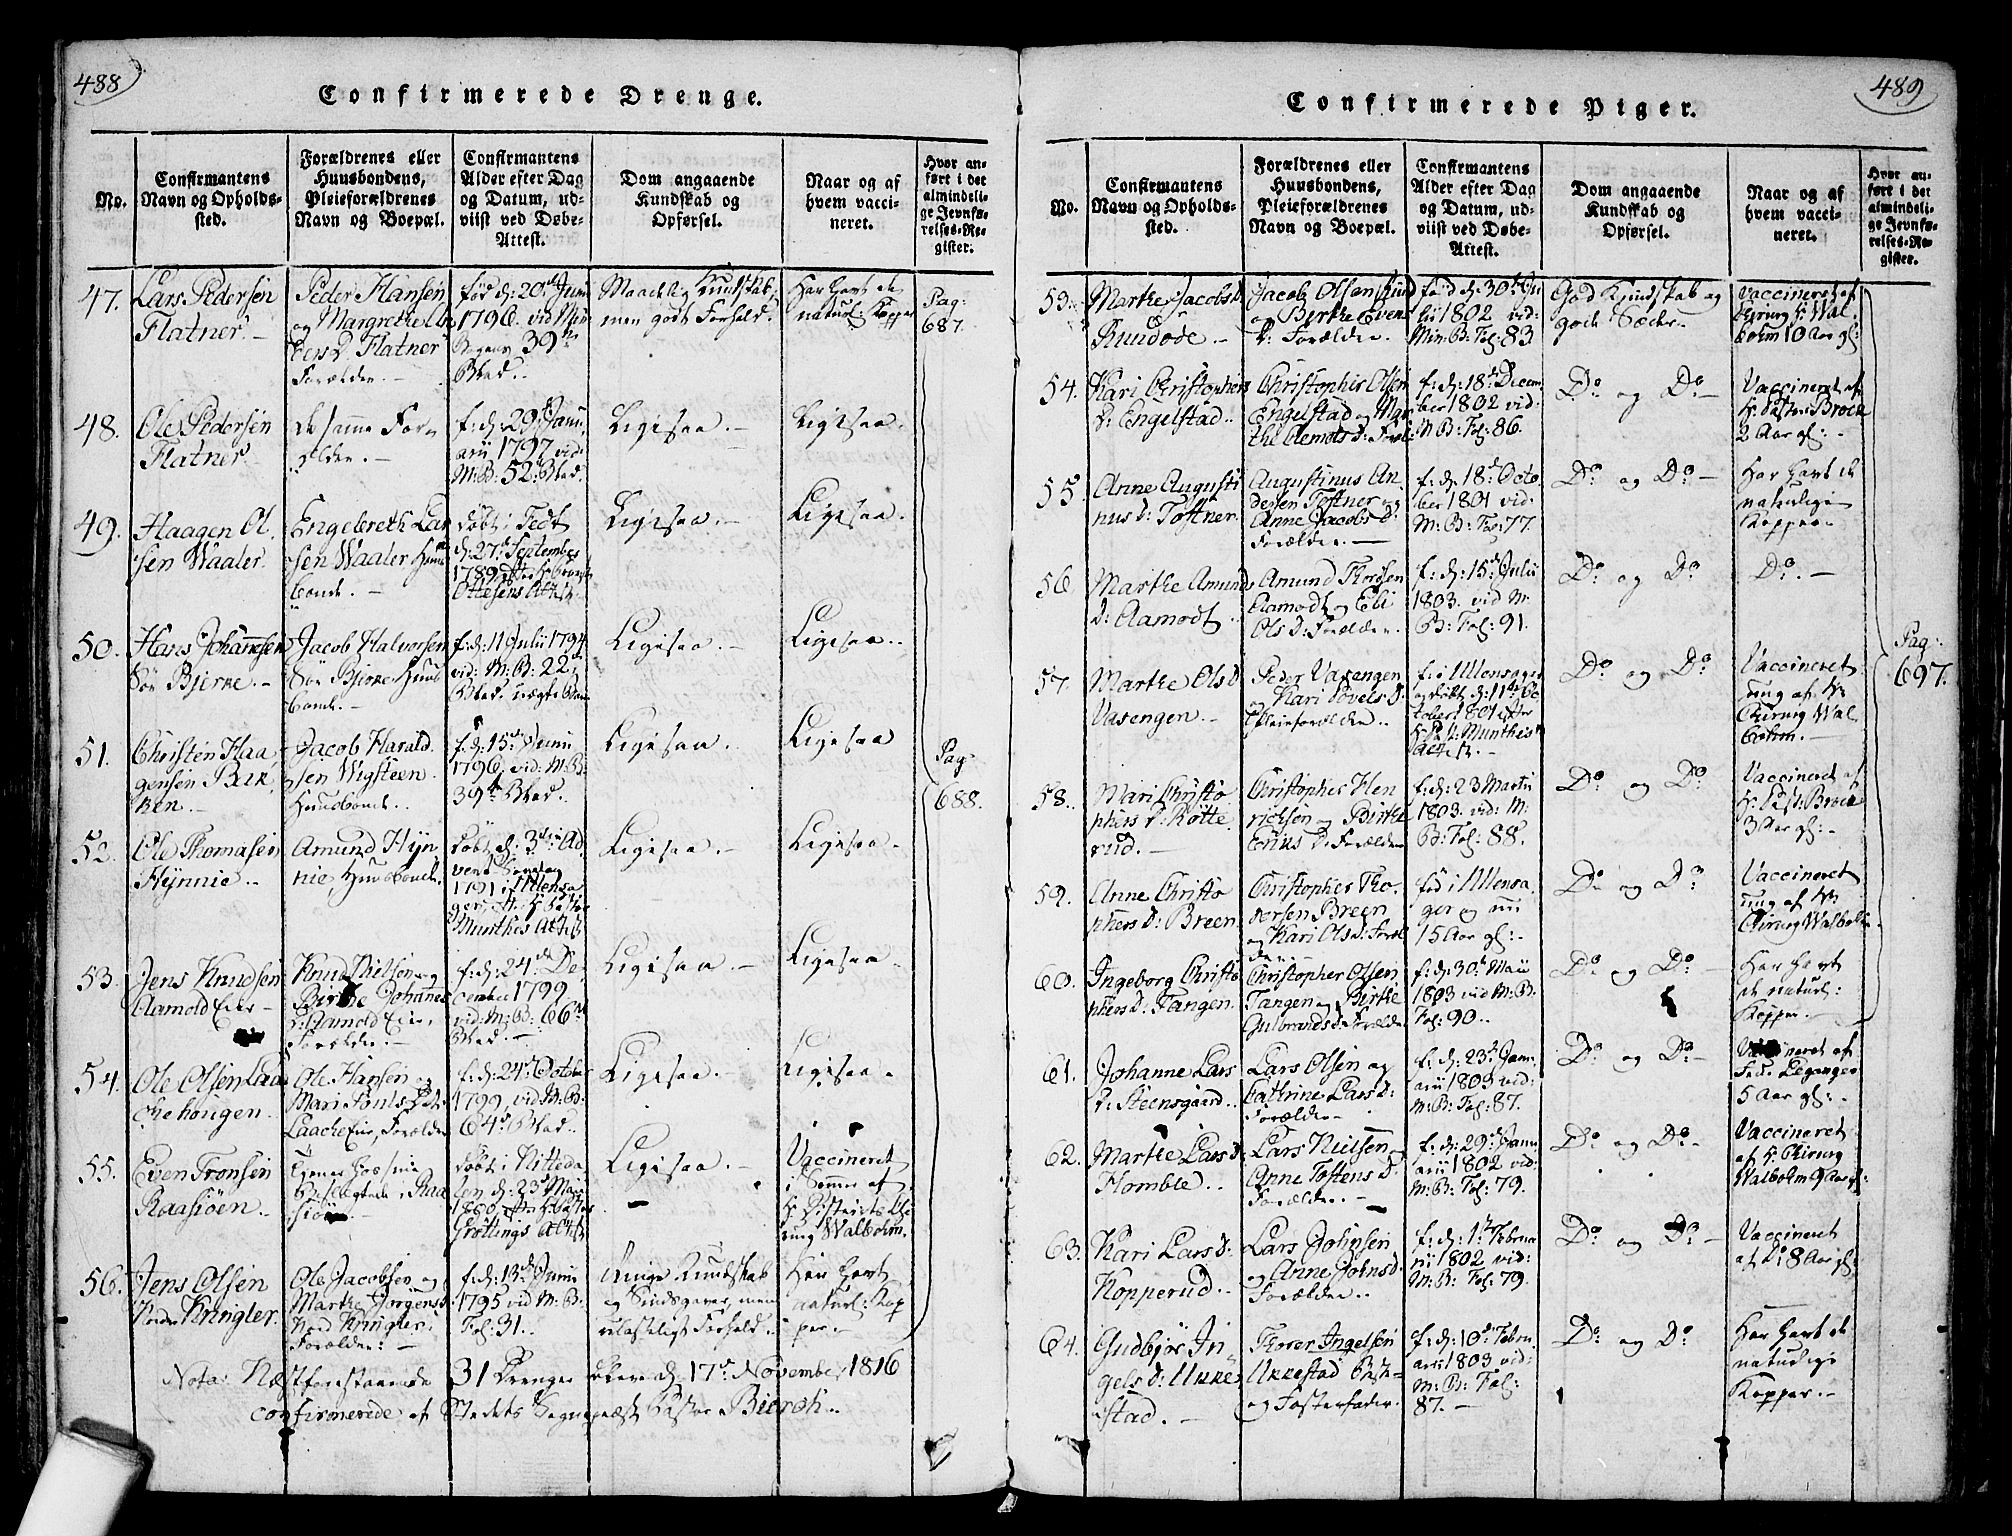 488
Confirmerede Drenge.
No.
Confirmantens Navn og Opholdssted.
Forældrenes eller Huusbondens, Pleieforældrenes Navn og Boepæl.
Confirmantens Alder efter Dag og Datum, udviist ved Døbe-Attest.
Dom angaaende Kundskab og Opførsel.
Naar og af hvem vaccineret.
Hvor anført i det almindelige Jevnførelses-Register.
47.
Lars Pedersen
Flatner.
Peder Hansen
og Margrethe
Flatner
Forældre.
fød d: 20de Junii
1796. vid Min
39te
Blad.
Maadelig Kundskab,
men godt Forhold.
Har havt de
naturl: Kopper
Pag:
687.
48.
Ole Pedersen
Flatner
de samme For-
ældre.
f: d: 29 Janu
arii 1797 vid:
M: B: 52 Blad.
Ligesaa.
Ligesaa.
49.
Haagen Ol
sen Waaler.
Engebreth Lar
sen Waaler Huus
bonde.
døbt i Fedt
d: 27de September
1789
Ottesens Attest.
Ligesaa.
Ligesaa.
50.
Hans Johannsen
Sør Bjerke.
Jacob Halvorsen
Sør Bjerke Huus
bonde.
f: d: 11 Julii 1794
vid: M: B: 22de
Blad.
Ligesaa.
Ligesaa.
51.
Christen Haa
gensen Bek
ken.
Jacob Harald
sen Wigsteen
Huusbonde.
f: d: 15de Junii
1796, vid: M: B:
39te Blad.
Ligesaa.
Ligesaa
Pag:
688.
52.
Ole Thomasen
Hynnie.
Amund Hyn
nie, Huusbonde.
døbt d: 3die Ad
vent Søndag
1791 i Ullensa
ger,
Munthes Attest
Ligesaa.
Ligesaa.
53.
Jens Knudsen
Aamold Eier
Knud Nielsen og
Birthe Johannes
d: Aamold Eier,
Forældre.
f: d: 24de De
cember 1799
vid: M: B: 66de
Blad.
Ligesaa.
Ligesaa.
54.
Ole Olsen Laa
kehougen.
Ole Hansen og
Mari Pouls d:
Laacke Eier, Forældre
f: d: 24de October
1799, vid M: B:
64de Blad.
Ligesaa.
Ligesaa.
55.
Even Tronsen
Raasiøen.
døbt i Nitteda
len d: 23de Maii
1800
Grøttings Attest
Ligesaa.
Vaccineret
i Sommer af
Hr Districts Chi
rurg Walbohm.
56.
Jens Olsen
Nordre Kringler.
Ole Jacobsen og
Marthe Jørgensd:
Nord Kringler,
Forældre.
f: d: 13de Junii
1795 vid M: B:
Fol: 31.
Ringe Kundskab
og Sindsgaver, men
ulasteligt Forhold.
Har havt
naturl: Kop
per.
Nota: Næstforestaaende 31 Drenge bleve d: 17de November 1816
confirmerede af Stedets Sognepræst Pastor Bieroth.
489
Confirmerede Piger.
No.
Confirmantens Navn og Opholdssted.
Forældrenes eller Huusbondens, Pleieforældrenes Navn og Boepæl.
Confirmantens Alder efter Dag og Datum, udviist ved Døbe-Attest.
Dom angaaende Kundskab og Opførsel.
Naar og af hvem vaccineret.
Hvor anført i det almindelige Jevnførelses-Register.
53.
Marthe Jacobs d:
Rundøe.
Jacob Olsen Rund
og Birthe Evens
d: Forældre.
fød d: 30te Ju
lii 1802 vid:
Min: B: Fol: 83
God Kundskab og
gode Sæder.
Vaccineret af
Chirurg Hr Wal
bohm 10 Aar gl:
54.
Kari Christophers
d: Engelstad.
Christopher Olsen
Engelstad og Mar
the Clemets d: Foræl:
f: d: 18de Decem
ber 1802 vid:
M: B: Fol: 86.
Do og Do
Vaccineret af
Hr Pastor Brock
2 Aar gl:
55
Anne Augusti
nus d: Toftner.
Augustinus An
dersen Toftner og
Anne Jacobs d:
Forældre.
f: d: 18de Octo
ber 1801 vid:
M: B: Fol: 77.
Do og Do
Har havt de
naturlige
Kopper.
56
Marthe Amunds
d: Aamodt.
Amund Thorsen
Aamodt og Eli
Ols d: Forældre.
f: d: 15de Julii
1803. vid M:
B: Fol: 91.
Do og Do
Do.
57.
Marthe Ols d:
Vasengen.
Peder Vasengen
og Kari Povels d:
Pleieforældre.
f: i Ullensager
og døbt d: 11te Oc
tober 1801 efter
Hr P: Munthes
Attest.
Do og Do
Vaccineret
ung af Hr
Chirurg Wal
bohm.
Pag:
697.
58.
Mari Christo
phers d: Rotte
rud.
Christopher Hen
richsen og Birthe
Forældre
f: d: 23 Martii
1803. vid: M:
B: Fol: 88.
Do og Do
Vaccineret af
Hr Past: Brock
3 Aar gl:
59.
Anne Christo
phers d: Breen.
Christopher Tho
Breen
og Kari Ols d: Foræl
dre.
fød i Ullensa
ger og
15 Aar gl:
Do og Do
Vaccineret
ung af Hr
Chirurg Walbohm.
60.
Ingeborg Christo
phers d: Tangen.
Christopher Olsen
Tangen og Birthe
Gulbrands d: Forældre
f: d: 30te Maii
1803 vid M: B:
Fol: 90.
Do og Do
Har havt
de naturl:
Kopper.
61.
Johanne Lars
d: Steensgaard.
Lars Olsen og
Cathrine Lars d:
Forældre
f: d: 23de Janu
arii 1803 vid:
M: B: Fol: 87.
Do og Do
Vaccineret af
Leganger
5 Aar gl:
62.
Marthe Lars d:
Homble.
Lars Nielsen
Anne Tostens d:
Forældre.
f: d: 29de Janu
arii 1802 vid:
M: B: Fol: 79.
Do og Do
Vaccineret
af Hr Chirurg
Walbohm 9 Aar gl:
63.
Kari Lars d:
Kopperud.
Lars Johnsen
og Anne Johns d:
Forældre.
f: d: 1ste Februa
rii 1802 vid:
M: B: Fol: 79.
Do og Do
Vaccineret
af Do 8 Aar gl:
64.
Gudbjør In
gels d: Ukke
stad.
Thorer Ingelsen
Ukkestad
og Fosterfader.
f: d: 10de Febru
arii 1803 vid:
M: B: Fol:
87.
Do og Do
Har havt de
naturlige
Kopper.